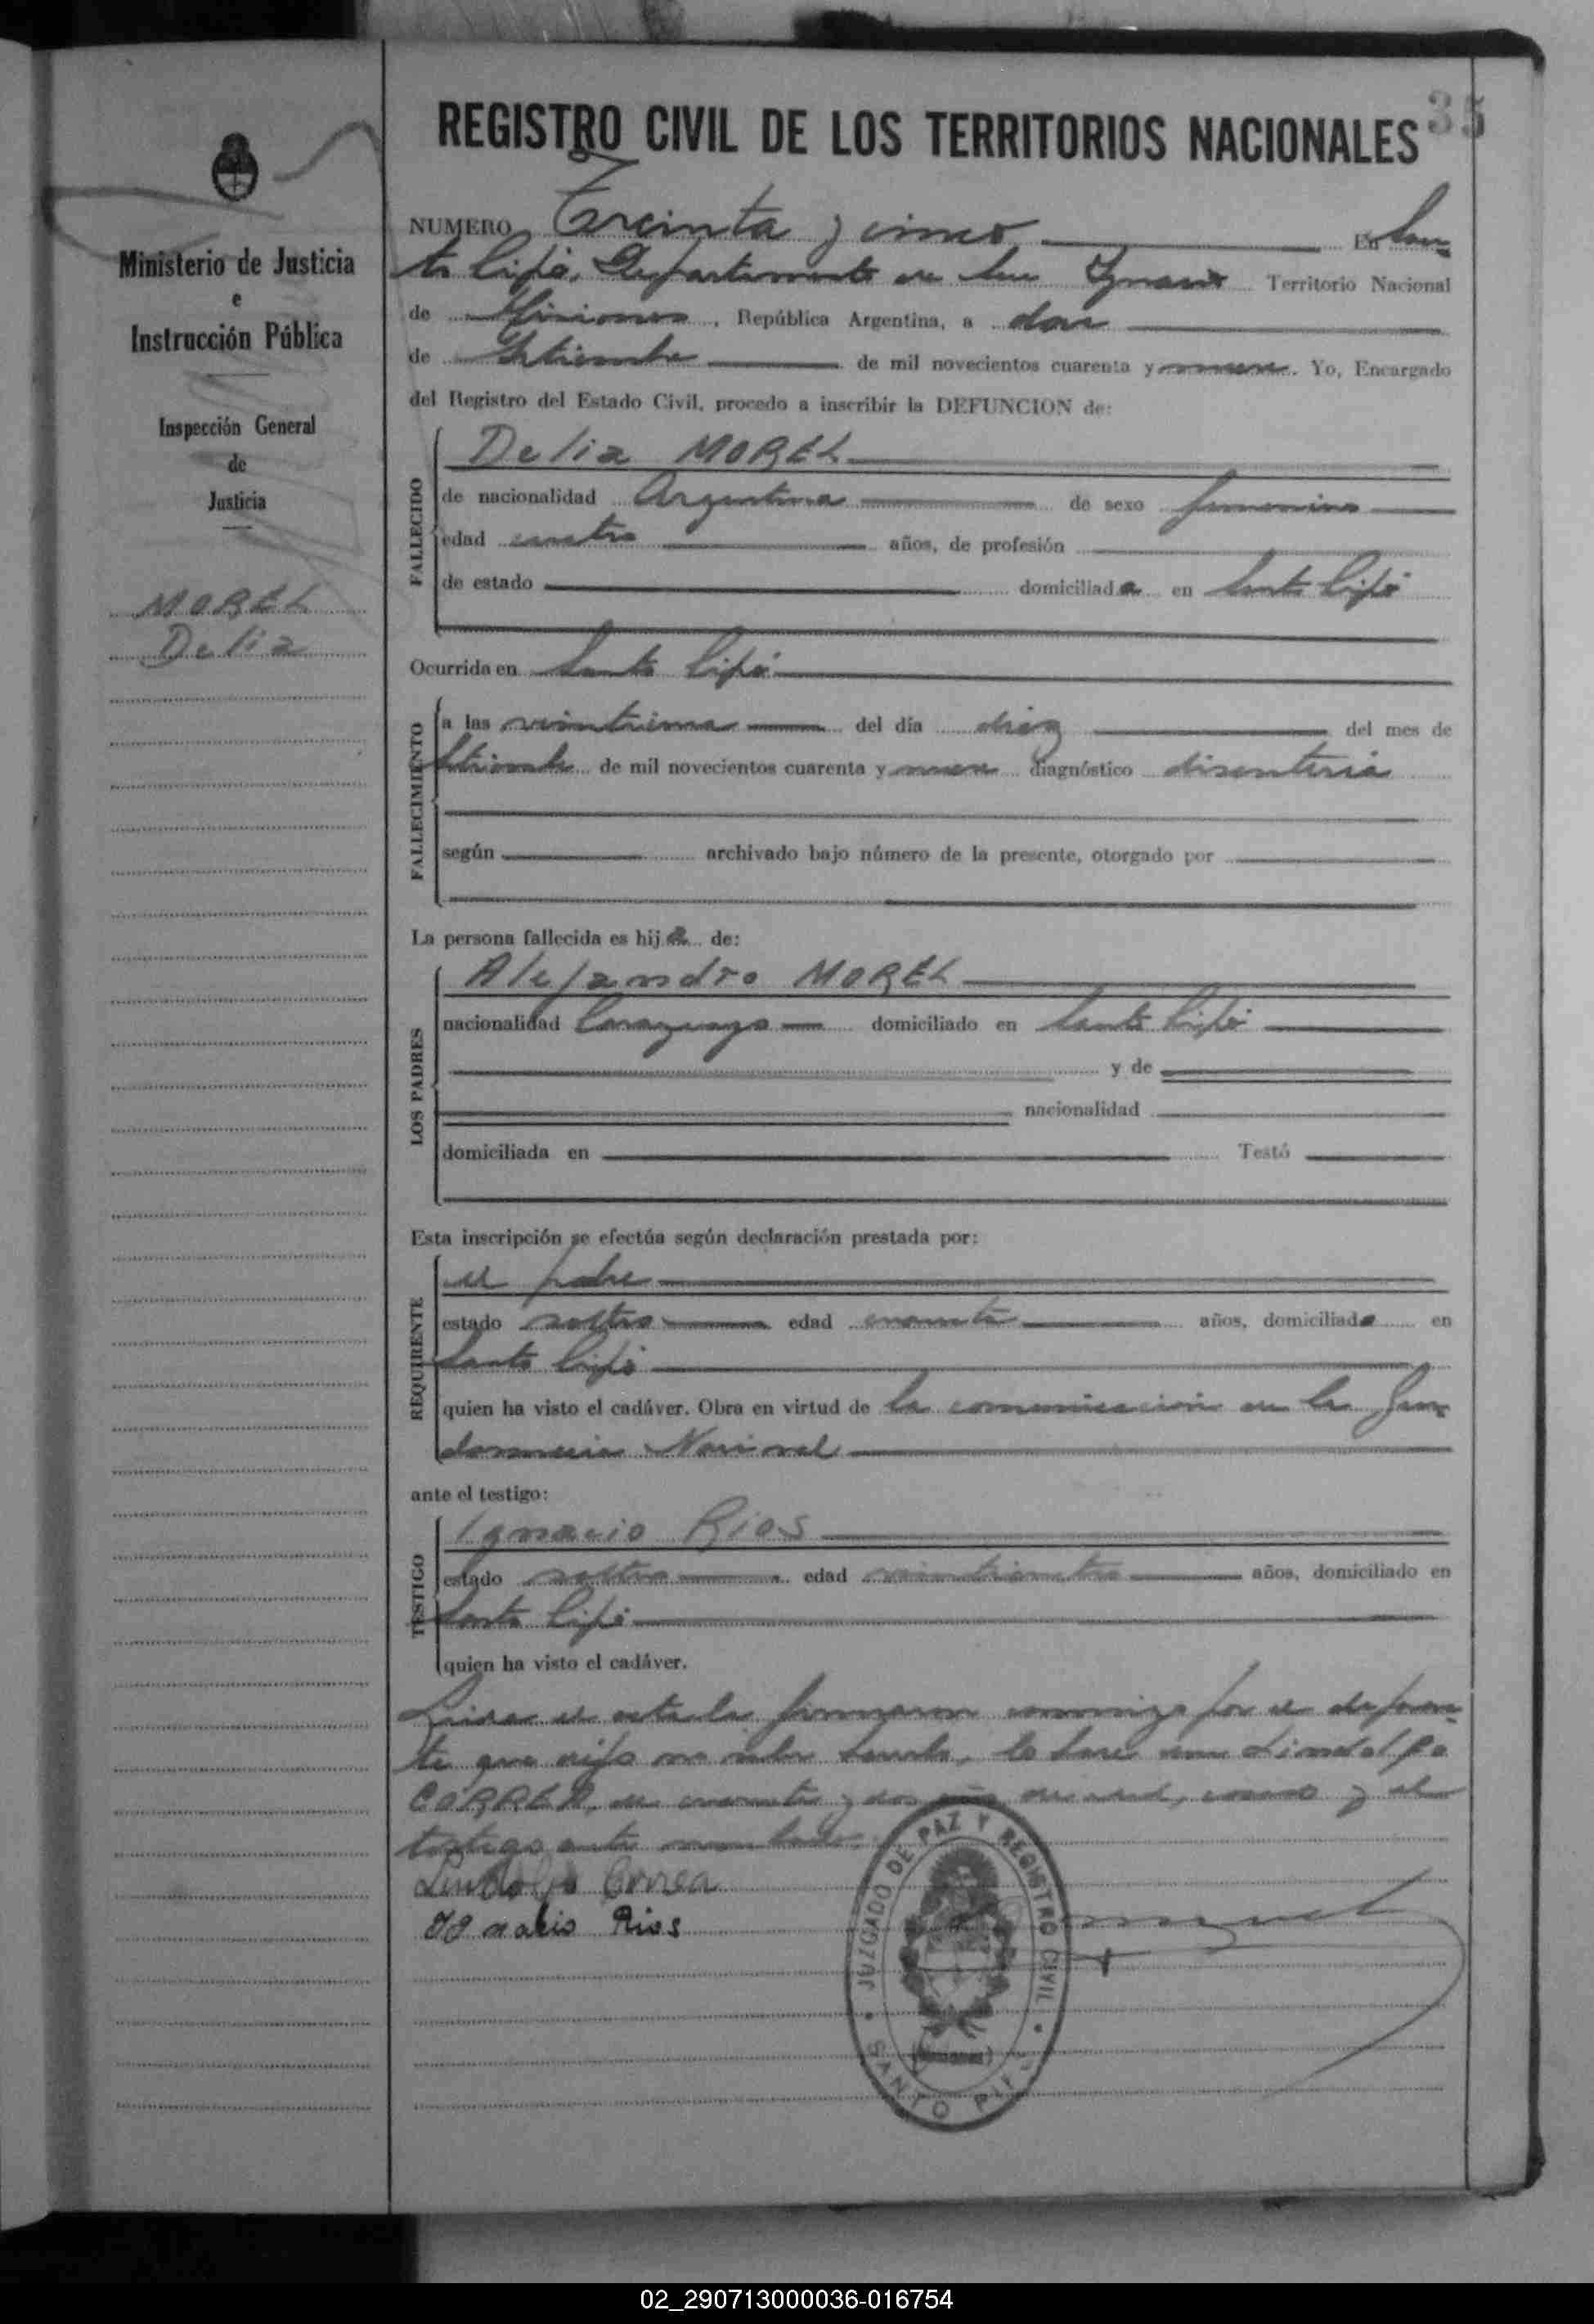 35
REGISTRO CIVIL DE LOS TERRITORIOS NACIONALES
Ministerio de Justicia
e
Instrucción Pública
Inspección General
de
Justicia
MOREL
Delia
NUMERO Treinta y cinco En San-
to Pipó, Departamento de San Ignacio Territorio Nacional
de Misiones, República Argentina, a doce
de Setiembre de mil novecientos cuarenta y nueve. Yo, Encargado
del Registro del Estado Civil, procedo a inscribir la DEFUNCION de:
FALLECIDO
Delia MOREL
de nacionalidad Argentina de sexo femenino
edad cuatro años, de profesión
de estado domiciliada en Santo Pipó
Ocurrida en Santo Pipó
FALLECIMIENTO
a las del día diez del mes de
Setiembre de mil novecientos cuarenta y nueve diagnóstico disenteria
según archivado bajo número de la presente, otorgado por
La persona fallecida es hija de:
LOS PADRES
Alejandro MOREL
nacionalidad Paraguayo domiciliado en Santo Pipó
y de
nacionalidad
domiciliada en Testó
Esta inscripción se efectúa según declaración prestada por:
REQUIRENTE
el padre
estado soltero edad cuarenta años, domiciliado en
Santo Pipó
quien ha visto el cadáver. Obra en virtud de la comunicación de la Gen-
darmeria Nacional
ante el testigo:
TESTIGO
Ignacio Rios
estado soltero edad veinticuatro años, domiciliado en
Santo Pipó
quien ha visto el cadáver.
Leida el acta la firmaron conmigo por el declaran-
te que dijo no saber hacerlo, lo hace don Lindolfo
CORREA, de cuarenta y dos años de edad, casado y el
testigo ante nombrado.
Lindolfo Correa
Ignacio Rios
JUZGADO DE PAZ Y REGISTRO CIVIL
SANTO PIPÓ
02_290713000036-016754